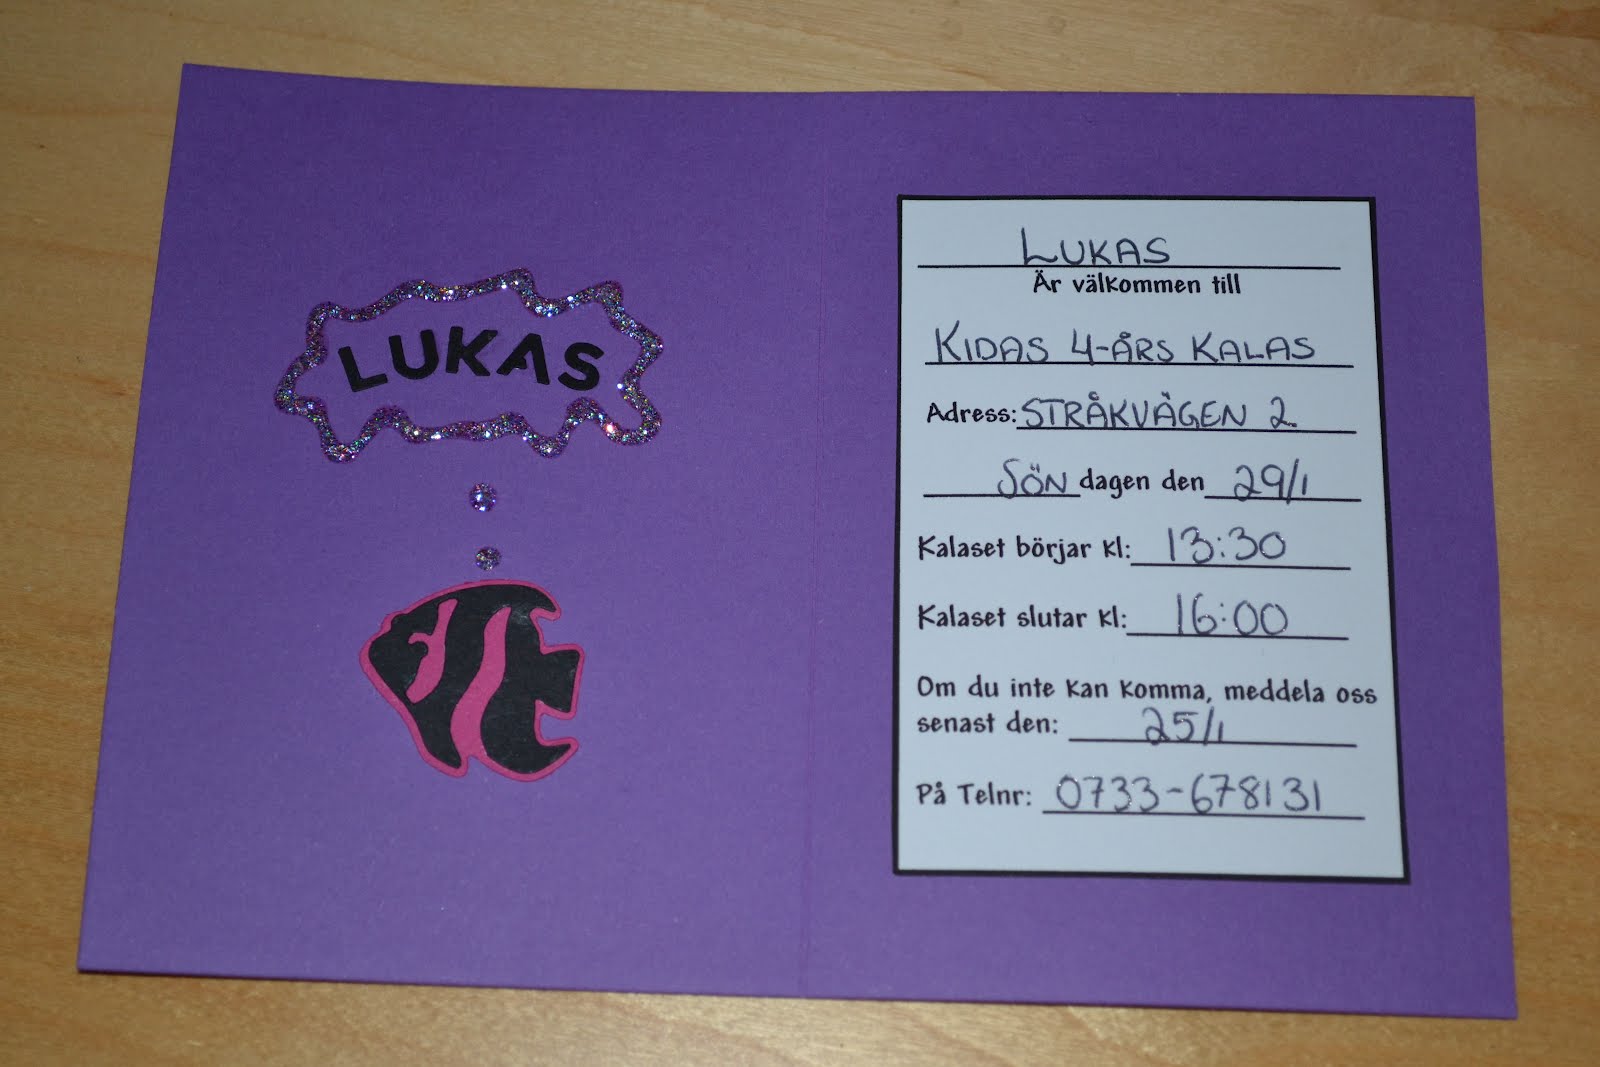 LUKAS
LUKAS
Är välkommen till
KIDAS 4-ÅRS KALAS
Adress: STRÅKVÄGEN 2.
SÖN dagen den 29/1
Kalaset börjar kl: 13:30
Kalaset slutar kl: 16:00
Om du inte kan komma, meddela oss
senast den: 25/1
På Telnr: 0733-678131